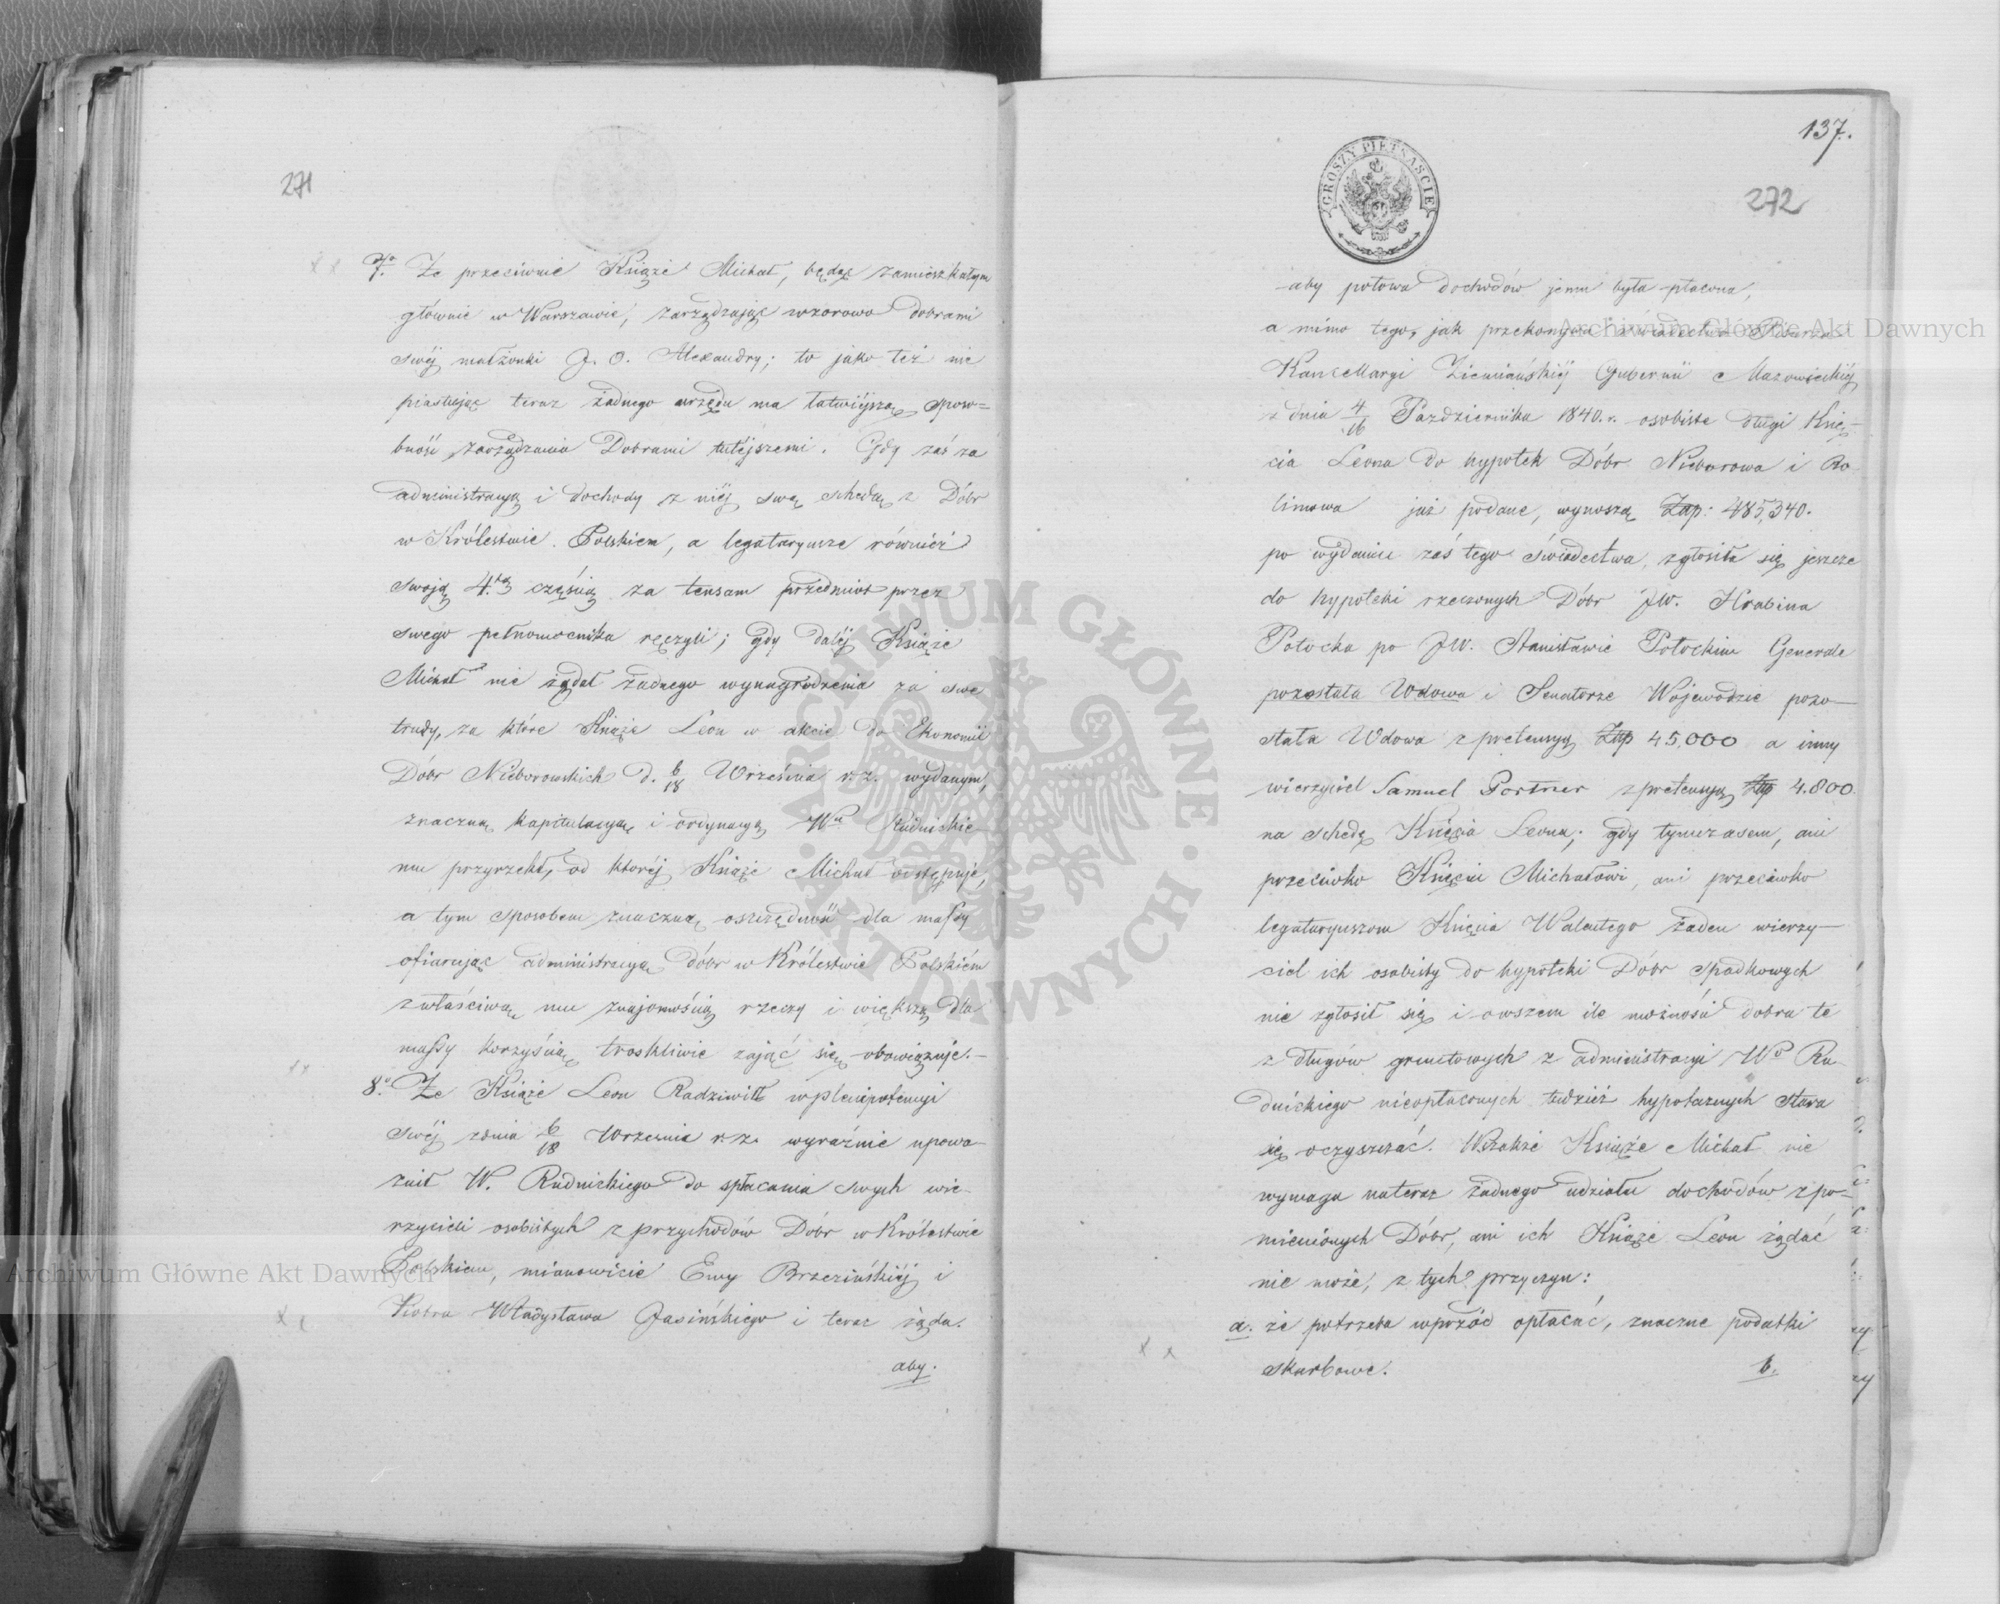 271
7° Że przeciwnie Książe Michał, będąc zamieszkałym
głównie w Warszawie, zarządzając wzorowo dobrami
swéj małżonki J. O. Alexandry; to jako też nie
piastując teraz żadnego urzędu ma łatwiejszą sposo=
bność zarządzania Dobrami tutéjszemi. Gdy zaś za
administracyą i dochody z niéj swą schedą z Dóbr
w Królestwie Polskiem, a legataryusze również
swoją 4tą częścią za tensam przedmiot przez
swego pełnomocnika ręczyli; gdy daléj Książe
Michał nie żądał żadnego wynagrodzenia za swe
trudy, za które Książe Leon w akcie do Ekonomii
Dóbr Nieborowskich d. 6/18 Września r. z. wydanym,
znaczną kapitulacyą i ordynacyą Wu Rudnickie-
mu przyrzekł, od któréj Książe Michał odstępuje,
a tym sposobem znaczną oszczędność dla massy
ofiarując administracyą dóbr w Królestwie Polskiém
z właściwą mu znajomością rzeczy i większą dla
massy korzyścią troskliwie zająć się obowiązuje.-
8° Że Książe Leon Radziwiłł w plenipotencyi
swéj z dnia 6/18 Września r. z. wyraźnie upowa-
żnił W. Rudnickiego do spłacania swych wie-
rzycieli osobistych z przychodów Dóbr w Królestwie
Polskiem, mianowicie Ewy Brzezińskiéj i
Piotra Władysława Jasińskiego i teraz żąda.
aby.
137.
GROSZY PIĘTNAŚCIE
272
aby połowa dochodów jemu była płacona,
a mimo tego, jak przekonywa świadectwo Pisarza
Kancellaryi Ziemiańskiéj Gubernii Mazowieckiéj
z dnia 4/16 Października 1840. r. osobiste długi Księ-
cia Leona do hypotek Dóbr Nieborowa i Bo
limowa już podane, wynoszą Złp: 485,340.
po wydaniu zaś tego świadectwa, zgłosiła się jeszcze
do hypoteki rzeczonych Dóbr JW. Hrabina
Potocka po JW. Stanisławie Potockim Generale
pozostała Wdowa i Senatorze Wojewodzie pozo-
stała Wdowa z pretensyą Złp 45,000 a inny
wierzyciel Samuel Portner z pretensyą Złp 4.800
na schedę Księcia Leona; gdy tymczasem, ani
przeciwko Księciu Michałowi, ani przeciwko
legataryuszom Księcia Walentego żaden wierzy-
ciel ich osobisty do hypoteki Dóbr spadkowych
nie zgłosił się i owszem ile możności dobra te
z długów gruntowych z administracyi Wo Ru-
dnickiego nieopłaconych tudzież hypotecznych stara
się oczyszczać. Wszakże Książe Michał nie
wymaga nateraz żadnego udziału dochodów z po-
mienionych Dóbr, ani ich Książe Leon żądać
nie może, z tych przyczyn:
a. że potrzeba wprzód opłacać, znaczne podatki
skarbowe.
b.
ARCHIWUM GŁÓWNE · AKT DAWNYCH ·
Archiwum Główne Akt Dawnych
Archiwum Główne Akt Dawnych